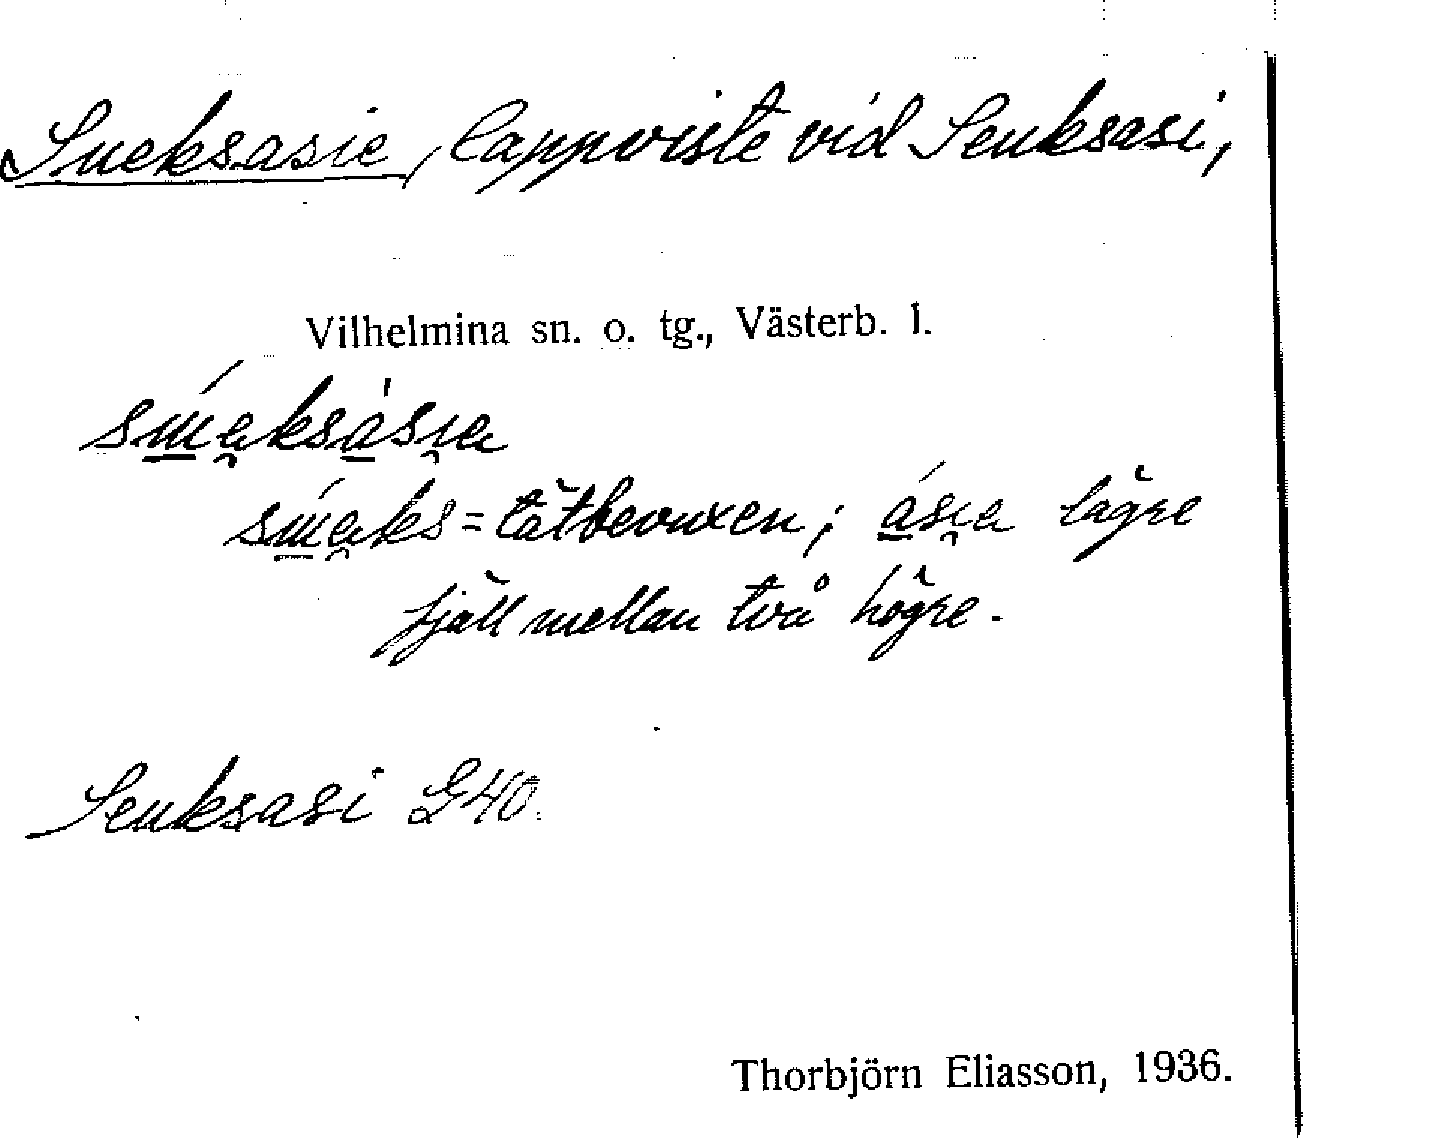 Sueksasie, lappviste vid Seuksasi,
Vilhelmina sn. o. tg., Västerb. l.
tätbevuxen; lägre
fjäll mellan två högre.
Seuksasi G40.
Thorbjörn Eliasson, 1936.